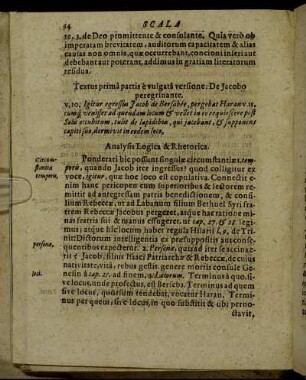 14 SCALA
te, 3. de Deo promittente & consolante. Quia verò ob
imperatam brevitatem, auditorum capacitatem & alias
causas non omnia, quæ occurrebant, concioni inferi aut
debebant aut poterant, addimus in gratiam literatorum
residua.
Textus primæ partis è vulgatâ versione: De Jacobo
peregrinante.
v. 10. Igitur egressus Jacob de Bersabee, pergebat Haran v. 11.
cumq; venisset ad quendam locum & vellet in eo requiescere post
Solis occubitum, tulit de lapidibus, qui jacebant, & supponens
capiti suo, dormivit in eodem loco.
Analysis Logica & Rhetorica.
Circum-
stantiæ
temporis,
Ponderari hîc possunt singulæ circumstantiæ 1. tem-
poris, quando Jacob iter ingressus? quod colligitur è
voce, igitur, quæ hoc loco est copulativa. Connectit e-
nim hanc pericopen cum superioribus & lectorem re-
mittit ad antegressam patris benedictionem, & con-
silium Rebeccæ, ut ad Labanum filium Bethuel Syri fra-
trem Rebeccæ Jacobus pergeret, atque hac ratione ni-
mis fratris sui & manus effugeret. ut cap. 27. & 28. legi-
mus; atque hîc locum habet regula Hilarii
Dictorum intelligentia ex præsuppositis aut conse-
quentibus expectetur.
personæ,
2. Personæ, quis ad iter se accinxe-
rit? Jacob, filius Isaaci Patriarchæ & Rebeccæ, de cujus
nativitate, vitâ, rebus gestis, genere mortis consule Ge-
nesin à cap. 25. ad finem.
loci.
4. Locorum. Terminus à quo si-
ve locus, unde profectus, est Berseba. Terminus ad quem
sive locus, quorsum tendebat, vocatur Haran. Termi-
nus per quem, sive locus, in quo substitit & ubi perno-
ctavit,